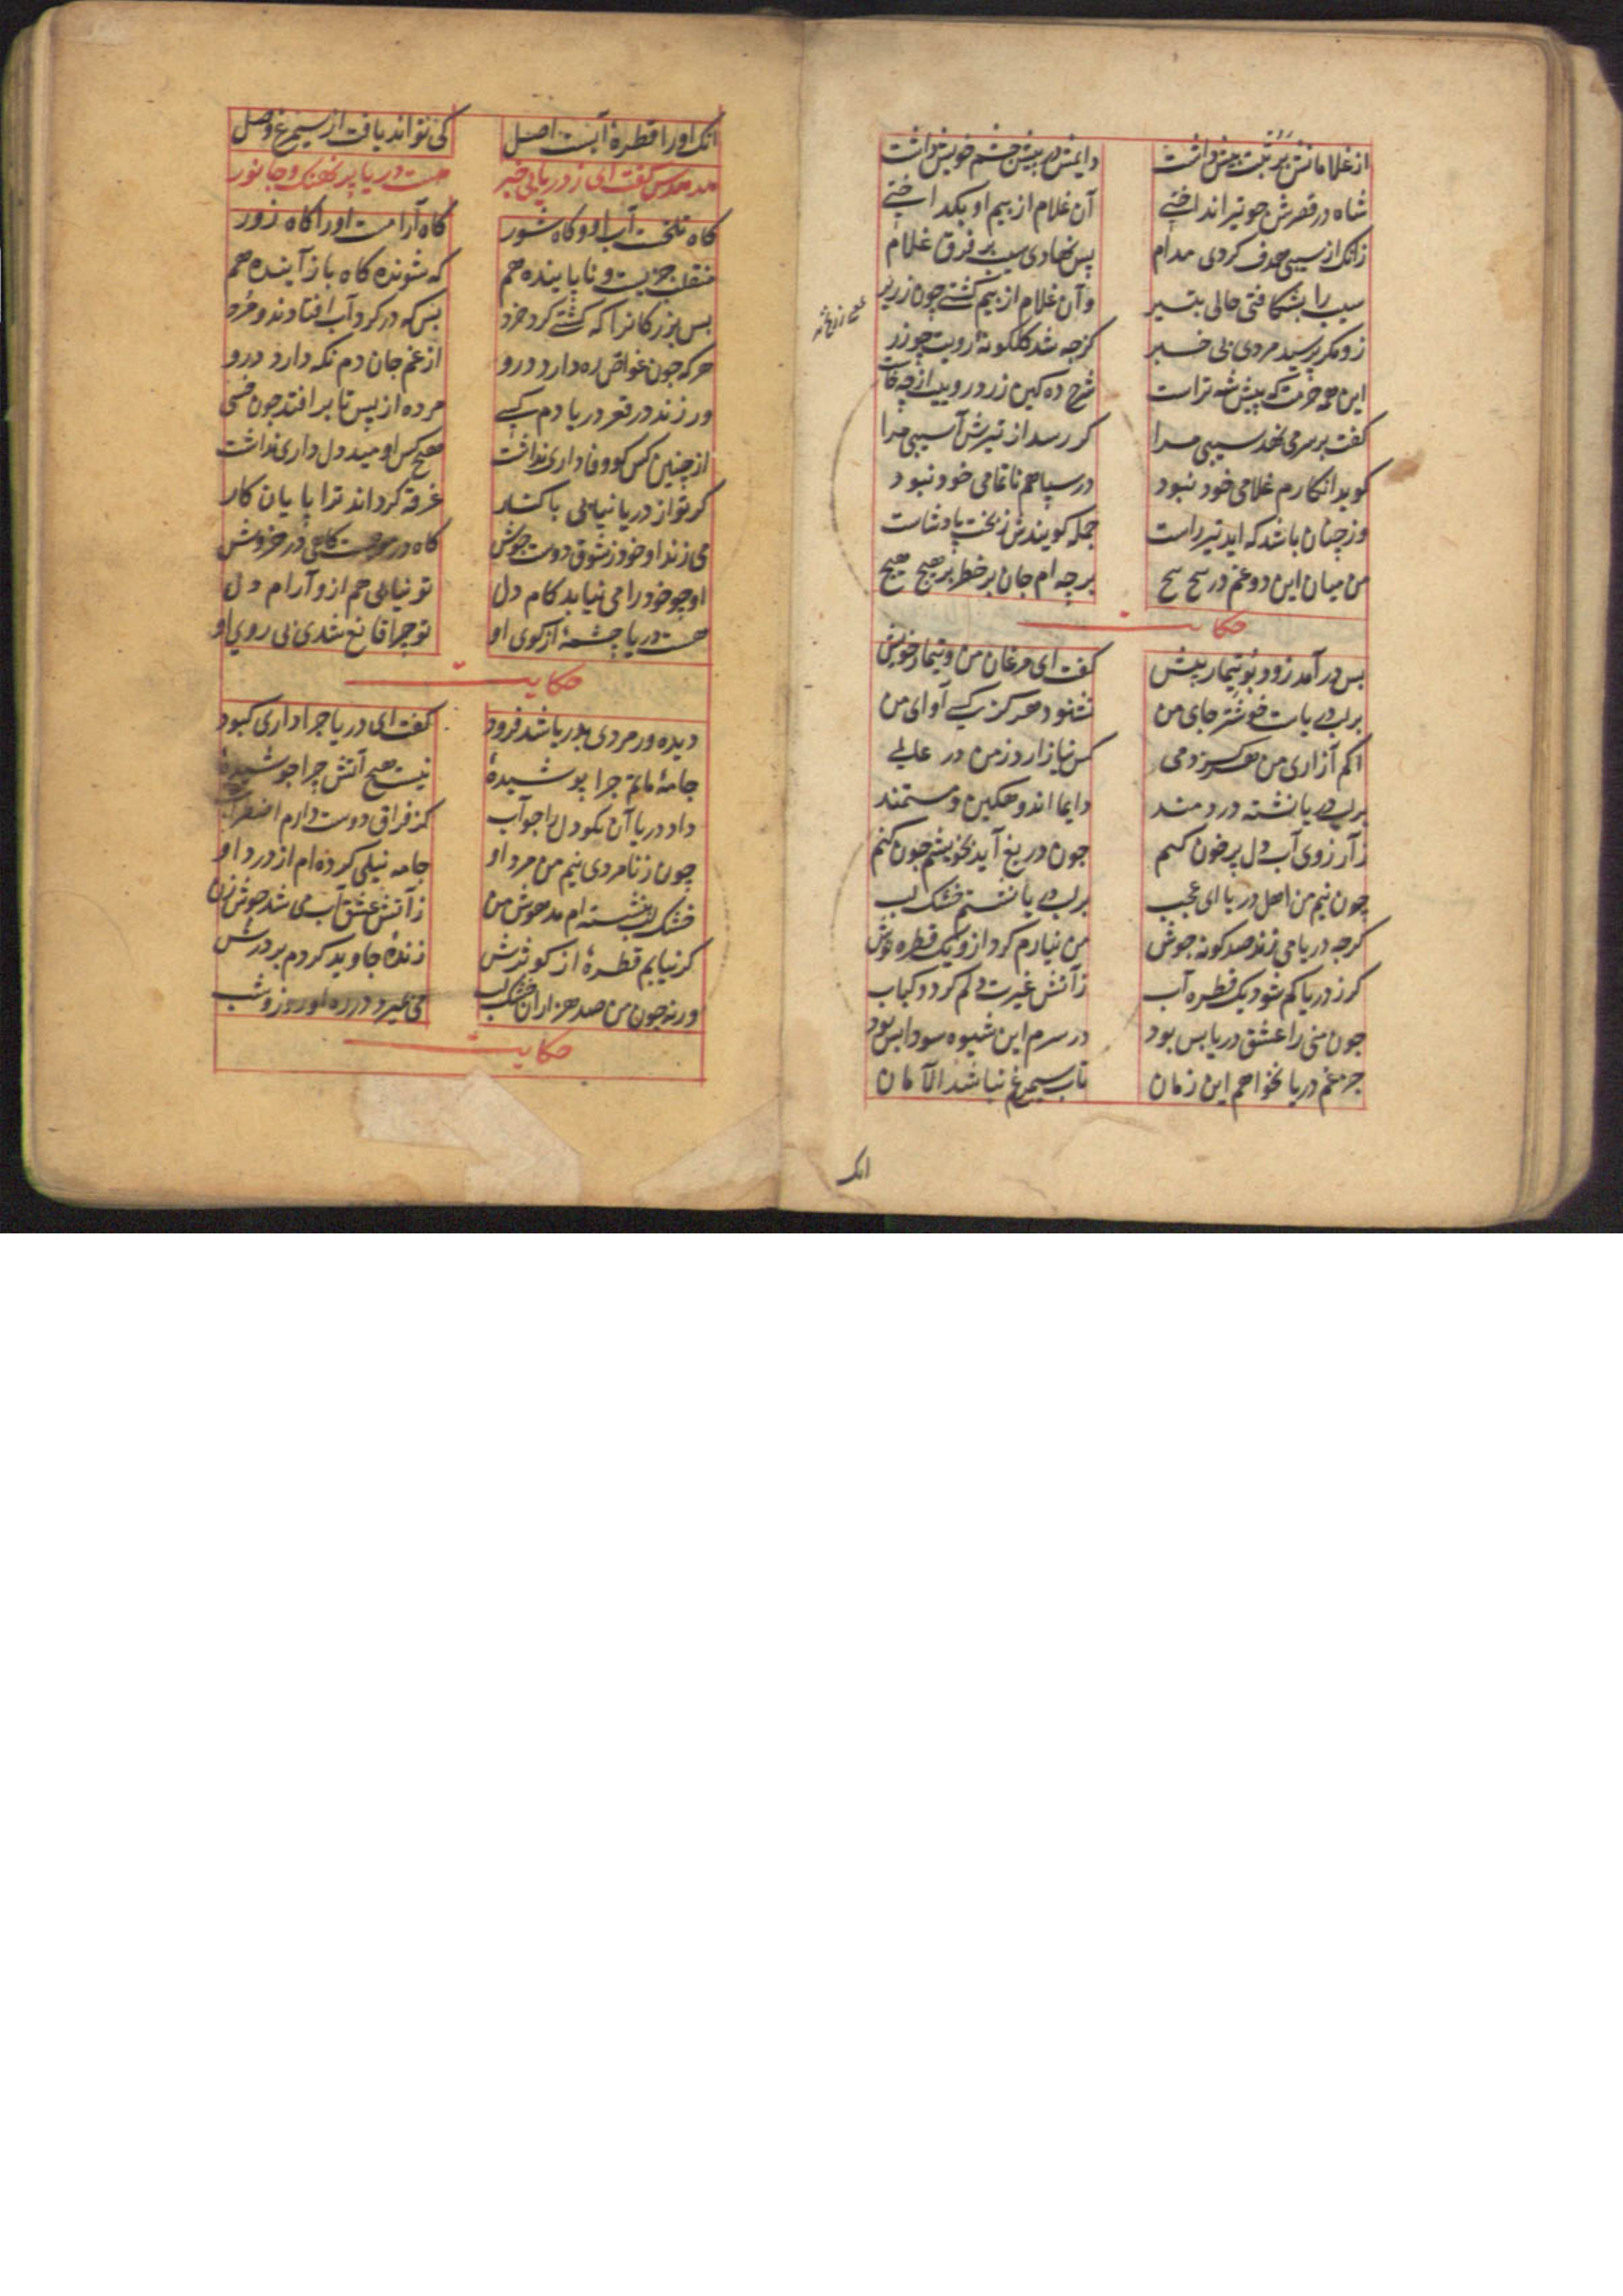 از غلامانش برتبت بیش داشت دایمش در پیش چشم خویش داشت
شاه در قصرش چو تیر انداختی آن غلام از بیم او بکداختی
زانک از سیبی هدف کردی مدام پس نهادی سیب بر فرق غلام
سیب را بشکافتی حالی بتیر وآن غلام از بیم کشتی چون زریر
زو مکر پرسید مردی بی خبر کز چه شد کلکونهٔ رویت چو زر
این همه حرمت که پیش شه تراست شرح ده کین زرد رویی از چه خاست
کفت بر سر می نهد سیبی مرا کر رسد از تیرش آسیبی مرا
کوید انکارم غلامی خود نبود در سپاهم ناتمامی خود نبود
ور چنان باشد که اید تیر راست جمله کویندش ز بخت پادشاست
من میان این دو غم در پیچ پیچ بر چه ام جان بر خطر بر هیچ هیچ
حکایت
پس در آمد زود بوتیمار پیش کفت ای مرغان من و تیمار خویش
بر لب دریاست خوشتر جای من نشنود هرکز کسی آوای من
از کم آزاری من هرکز دمی کس نیازارد ز من در عالمی
بر لب دریا نشسته دردمند دایما اندوهکین و مستمند
ز آرزوی آب دل پر خون کنم چون دریغ آید بخویشم چون کنم
چون نیم من اهل دریا ای عجب بر لب دریا نشستم خشک لب
کرچه دریا می زند صد کونه جوش من نیارم کرد ازو یک قطره نوش
کر ز دریا کم شود یک قطره آب ز آتش غیرت دلم کردد کباب
چون منی را عشق دریا بس بود در سرم این شیوه سودا بس بود
جز غم دریا نخواهم این زمان تاب سیمرغ نباشد الامان
انک
انک او را قطرهٔ آبست اصل کی تواند یافت از سیمرغ وصل
هدهدش کفت ای ز دریا بی خبر هست دریا پر نهنک و جانور
کاه تلخست آب او و کاه شور کاه آرامست او را کاه زور
منقلب چیزیست و ناپاینده هم که شونده کاه باز آینده هم
بس بزرکانرا که کشتی کرد خرد بس که در کرد آب افتادند و مرد
هرکه چون غواص ره دارد درو از غم جان دم نکه دارد درو
ور زند در قعر دریا دم کسی مرده از پس تا بر افتد چون خسی
از چنین کس کو وفاداری نداشت هیچ کس اومید دلداری نداشت
کر تو از دریا نیایی با کنار غرقه کرداند ترا پایان کار
می زند او خود ز شوق دوست جوش کاه در موجست کاهی در خروش
او چو خود را می نیابد کام دل تو نیابی هم ازو آرام دل
هست دریا چشمهٔ از کوی او تو چرا قانع شدی بی روی او
حکایت
دیده ور مردی بدریا شد فرود کفت ای دریا چرا داری کبود
جامهٔ ماتم چرا پوشیدهٔ نیست هیچ آتش چرا جوشیدهٔ
داد دریا آن نکو دل را جواب کز فراق دوست دارم اضطراب
چون ز نامردی نیم من مرد او جامه نیلی کرده ام از درد او
خشک لب بنشسته ام مدهوش من ز آتش عشق آب می شد جوش زن
کر نیابم قطرهٔ از کوثرش زندهٔ جاوید کردم بر درش
ورنه چون من صد هزاران خشک لب می میرد در ره او روز و شب
حکایت